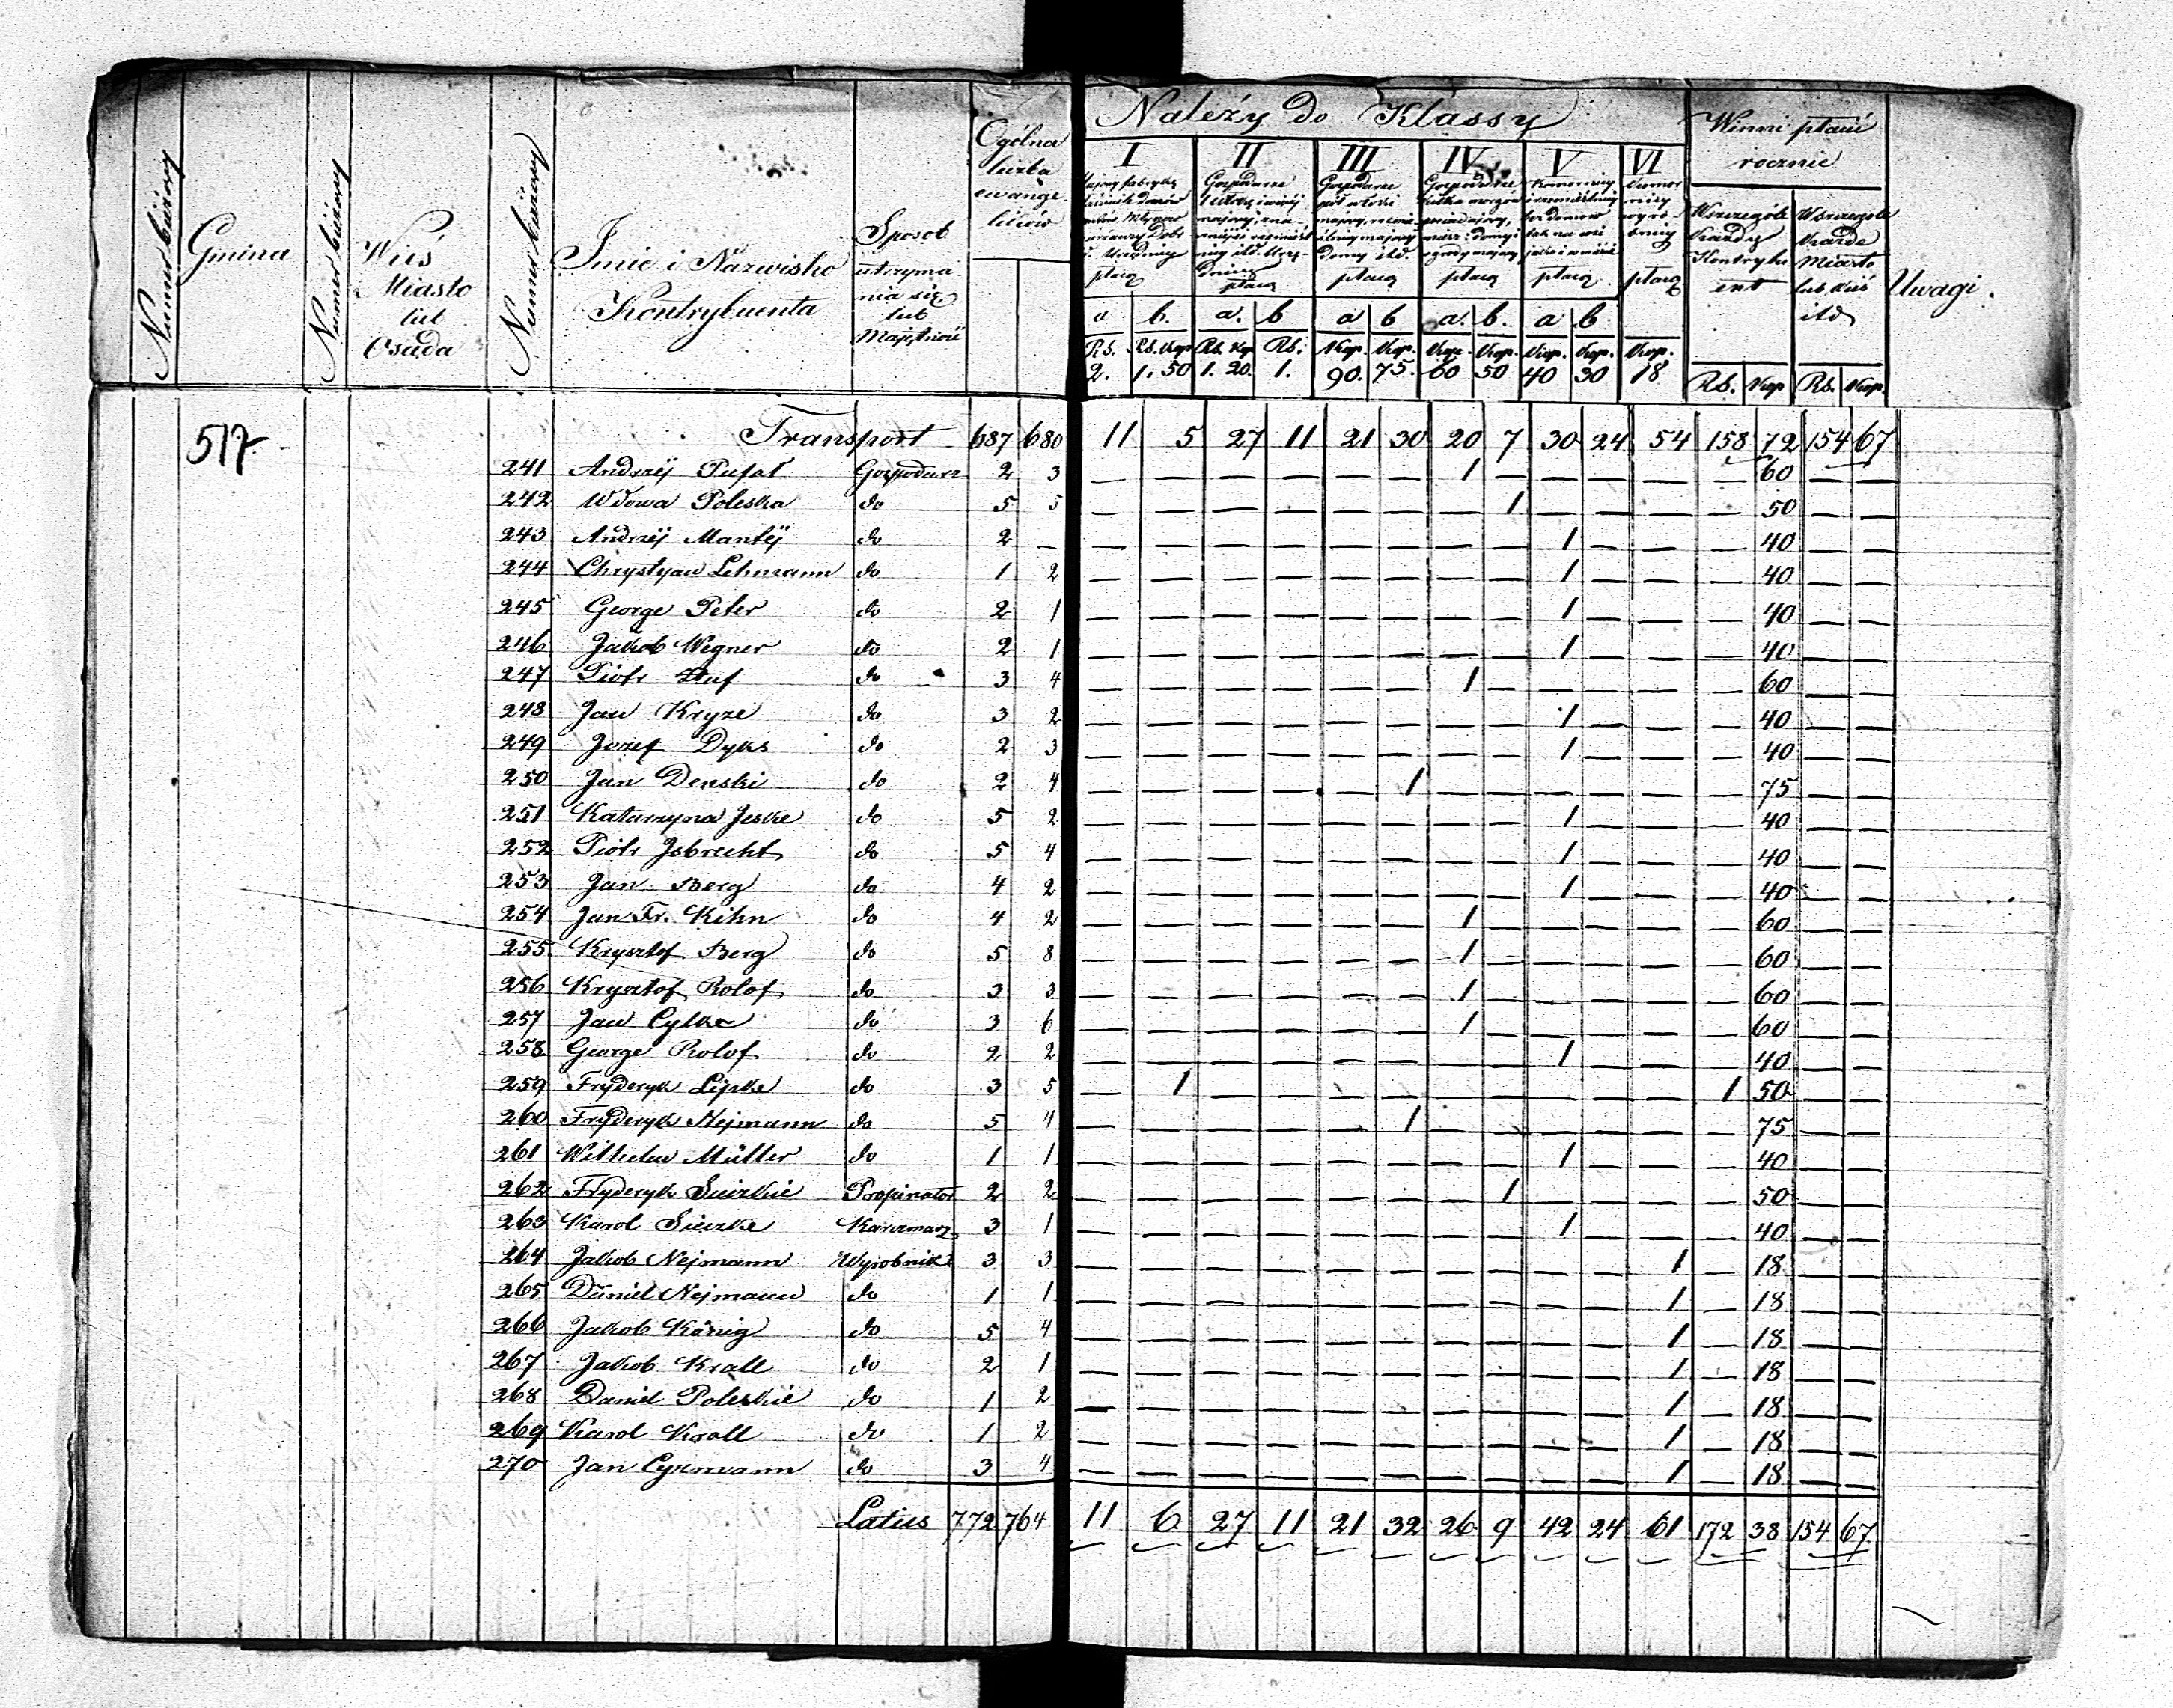 Numer bieżący
Gmina
Numer bieżący
Wieś
Miasto
lub
Osada
Numer bieżący
Imie i Nazwisko
Kontrybuenta
Sposób
utrzyma
nia się
lub
Majętność
Ogólna
liczba
ewange
lików
Należy do Klassy
I
płacą
a b.
Rs. Rs. Kop
2. 1. 50
II
Gospodarze
płacą
a. b
Rs. Kop Rs.
1. 20. 1.
III
Gospodarze
pół włóki
domy itd.
płacą
a b
Kop. Kop.
90. 75.
IV
Gospodarze
kilka morgów
posiadający,
płacą
a. b.
Kop. Kop.
60 50
V
Komornicy
płacą
a b
Kop. Kop.
40 30
VI
Komor
nicy
wyro
bnicy
płacą
Kop.
18
Winni płacić
rocznie
Wszczególe
każdy
Kontrybu
ent
Rs. Kop
Wszczególe
każde
Miasto
lub wieś
itd
Rs. Kop.
Uwagi.
517.
Transport 687 680 11 5 27 11 21 30 20 7 30 24 54 158 72 154 67
241 Andrzéj Pufat Gospodarz 2 3 — — — — — — 1 — — — — — 60 — —
242 Wdowa Poleska do 5 5 — — — — — — — 1 — — — — 50 — —
243 Andrzéj Mantéj do 2 — — — — — — — — — 1 — — — 40 — —
244 Chrystyan Lehmann do 1 2 — — — — — — — — 1 — — — 40 — —
245 George Peter do 2 1 — — — — — — — — 1 — — — 40 — —
246 Jakob Wegner do 2 1 — — — — — — — — 1 — — — 40 — —
247 Piotr do 3 4 — — — — — — 1 — — — — — 60 — —
248 Jan Kryze do 3 2 — — — — — — — — 1 — — — 40 — —
249 Jozef Dyks do 2 3 — — — — — — — — 1 — — — 40 — —
250 Jan Denski do 2 4 — — — — — 1 — — — — — — 75 — —
251 Katarzyna Jeske do 5 2 — — — — — — — — 1 — — — 40 — —
252 Piotr Jsbrecht do 5 4 — — — — — — — — 1 — — — 40 — —
253 Jan Berg do 4 2 — — — — — — — — 1 — — — 40 — —
254 Jan Fr. Kihn do 4 2 — — — — — — 1 — — — — — 60 — —
255 Krysztof Berg do 5 8 — — — — — — 1 — — — — — 60 — —
256 Krysztof Rolof do 3 3 — — — — — — 1 — — — — — 60 — —
257 Jan Cylke do 3 6 — — — — — — 1 — — — — — 60 — —
258 George Rolof do 2 2 — — — — — — — — 1 — — — 40 — —
259 Fryderyk Lipke do 3 5 — 1 — — — — — — — — — 1 50 — —
260 Fryderyk Nejmann do 5 4 — — — — — 1 — — — — — — 75 — —
261 Wilhelm Müller do 1 1 — — — — — — — — 1 — — — 40 — —
262 Fryderyk Suizkie Propinator 2 2 — — — — — — — 1 — — — — 50 — —
263 Karol Siezke Karczmarz 3 1 — — — — — — — — 1 — — — 40 — —
264 Jakob Nejmann Wyrobnik 3 3 — — — — — — — — — — 1 — 18 — —
265 Daniel Nejmann do 1 1 — — — — — — — — — — 1 — 18 — —
266 Jakob König do 5 4 — — — — — — — — — — 1 — 18 — —
267 Jakob Krall do 2 1 — — — — — — — — — — 1 — 18 — —
268 Daniel Poleskie do 1 2 — — — — — — — — — — 1 — 18 — —
269 Karol Krall do 1 2 — — — — — — — — — — 1 — 18 — —
270 Jan Cyrmann do 3 4 — — — — — — — — — — 1 — 18 — —
Latus 772 764 11 6 27 11 21 32 26 9 42 24 61 172 38 154 67